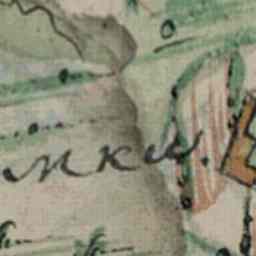 мки.